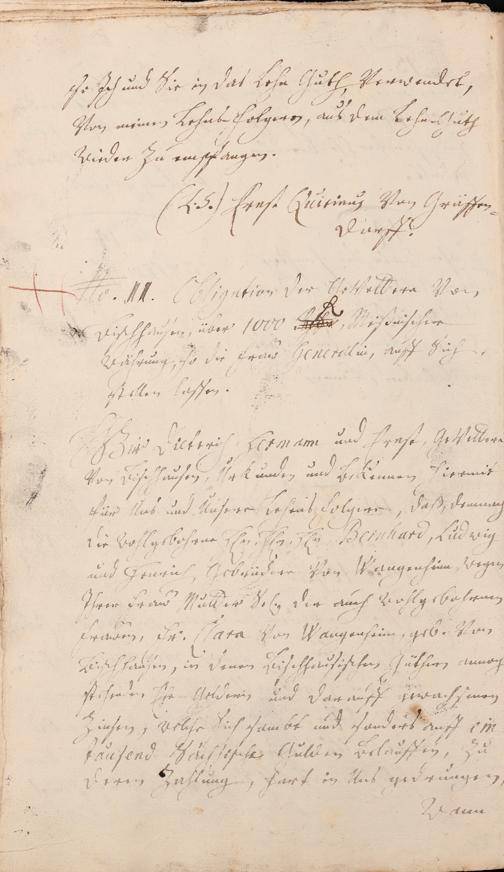 so ich und Sie in das Lehn Guth, Verwendet,
Von meinen Lehns Folgern, aus dem Lehn Guth
wieder zu empfangen.
(L.S.) Ernst Quirinus Von
dorff.
No. 11. Obligation der Gevettern Von
Bischhausen, über 1000 Meißnischer
Währung, so die Frau Generalin, auff Sich
stellen lassen.
Wir Dieterich, Hermann und Ernst, Gevettern
Von Bischhausen, Urkunden und Bekennen hiermit
für Uns und Unsere Lehens Folgere, daß, demnach
die Wohlgebohrne Bernhard, Ludwig
und Henrich, Gebrüdere Von Wangenheim, wegen
Ihrer Frau Mutter Seel. der auch Wohlgebohrnen
Frauen, Fr. Clara Von Wangenheim, geb. Von
Bischhausen, in denen Bischhausischen Güthern annoch
stehenden Geldern und darauff erwachsenen
Zinsen, welche sich sambt und sonders auff ein
tausend Gulden Belauffen, zu
deren Zahlung, hart in Uns gedrungen,
Wann